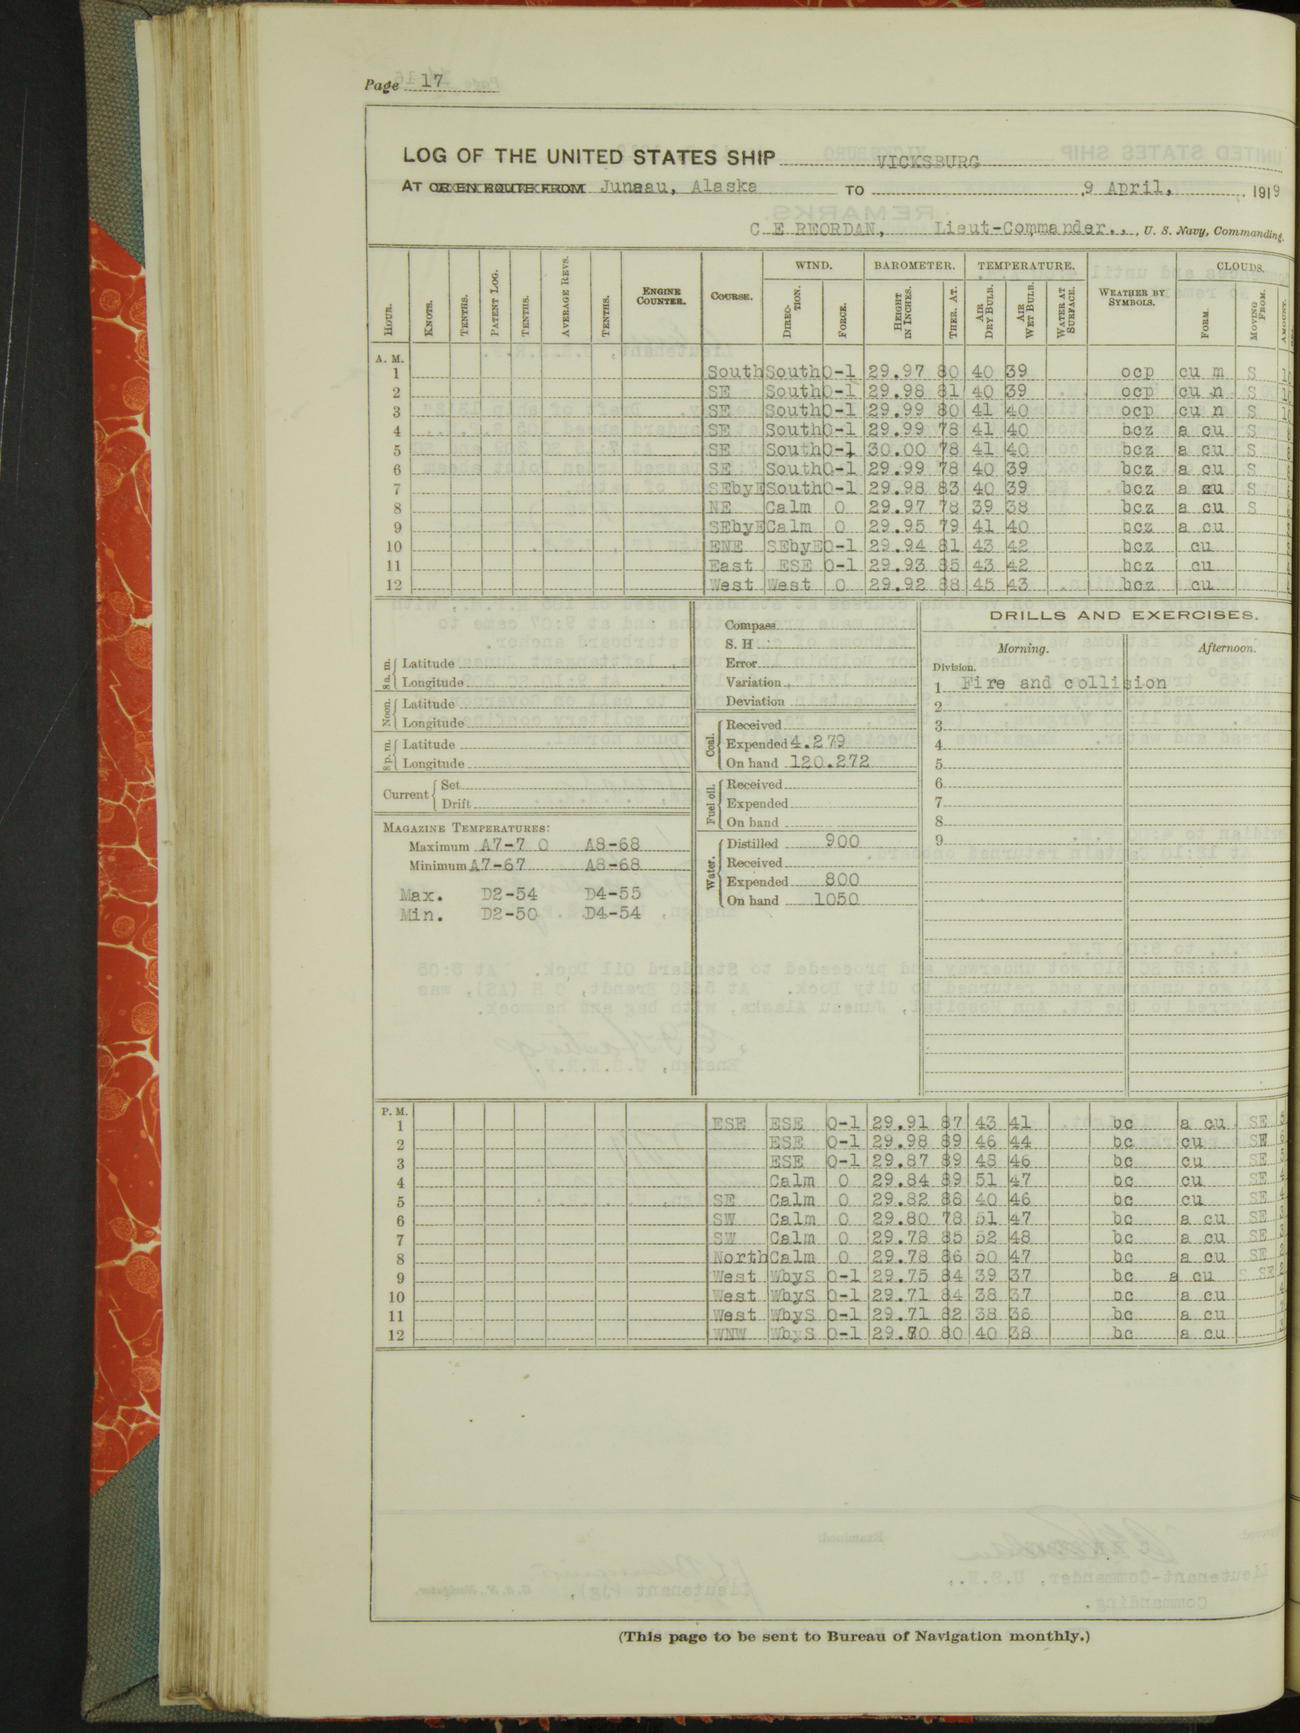 Page 17
LOG OF THE UNITED STATES SHIP VICKSBURG
AT OR EN ROUTE FROM Juneau, Alaska TO 9 April, 1919
C E REORDAN, Lieut-Commander.., U. S. Navy, Commanding.
WIND. BAROMETER. TEMPERATURE. CLOUDS.
HOUR. KNOTS. TENTHS. PATENT LOG. TENTHS. AVERAGE REVS. TENTHS. ENGINE COUNTER. COURSE. DIRECTION. FORCE. HEIGHT IN INCHES. THER. AT. AIR DRY BULB. AIR WET BULB. WATER AT SURFACE. WEATHER BY SYMBOLS. FORM. MOVING FROM. AMOUNT.
A. M.
1 South South 0-1 29.97 80 40 39 ocp cu m S 10
2 SE South 0-1 29.98 81 40 39 ocp cu n S 10
3 SE South 0-1 29.99 80 41 40 ocp cu n S 10
4 SE South 0-1 29.99 78 41 40 bcz a cu S
5 SE South 0-1 30.00 78 41 40 bcz a cu S
6 SE South 0-1 29.99 78 40 39 bcz a cu S
7 SEbyE South 0-1 29.98 83 40 39 bcz a cu S
8 NE Calm 0 29.97 78 39 38 bcz a cu S
9 SEbyE Calm 0 29.95 79 41 40 bcz a cu
10 ENE SEbyE 0-1 29.94 81 43 42 bcz cu
11 East ESE 0-1 29.93 85 43 42 bcz cu
12 West West 0 29.92 88 45 43 bcz cu
8 a. m. Latitude
Longitude
Noon. Latitude
Longitude
8 p. m. Latitude
Longitude
Current Set
Drift
MAGAZINE TEMPERATURES:
Maximum A7-7 0 A8-68
Minimum A7-67 A8-68
Max. D2-54 D4-55
Min. D2-50 D4-54
Compass
S. H
Error
Variation
Deviation
Coal. Received
Expended 4.279
On hand 120.272
Fuel oil. Received
Expended
On hand
Water. Distilled 900
Received
Expended 800
On hand 1050
DRILLS AND EXERCISES.
Morning. Afternoon.
Division.
1 Fire and collision
2
3
4
5
6
7
8
9
P. M.
1 ESE ESE 0-1 29.91 87 43 41 bc a cu SE
2 ESE 0-1 29.98 89 46 44 bc cu SE
3 ESE 0-1 29.87 89 48 46 bc cu SE
4 Calm 0 29.84 89 51 47 bc cu SE
5 SE Calm 0 29.82 88 40 46 bc cu SE
6 SW Calm 0 29.80 78 51 47 bc a cu SE
7 SW Calm 0 29.78 85 52 48 bc a cu SE
8 North Calm 0 29.78 86 50 47 bc a cu SE
9 West WbyS 0-1 29.75 84 39 37 bc a cu SE
10 West WbyS 0-1 29.71 84 38 37 bc a cu
11 West WbyS 0-1 29.71 82 38 36 bc a cu
12 WNW WbyS 0-1 29.70 80 40 38 bc a cu
(This page to be sent to Bureau of Navigation monthly.)